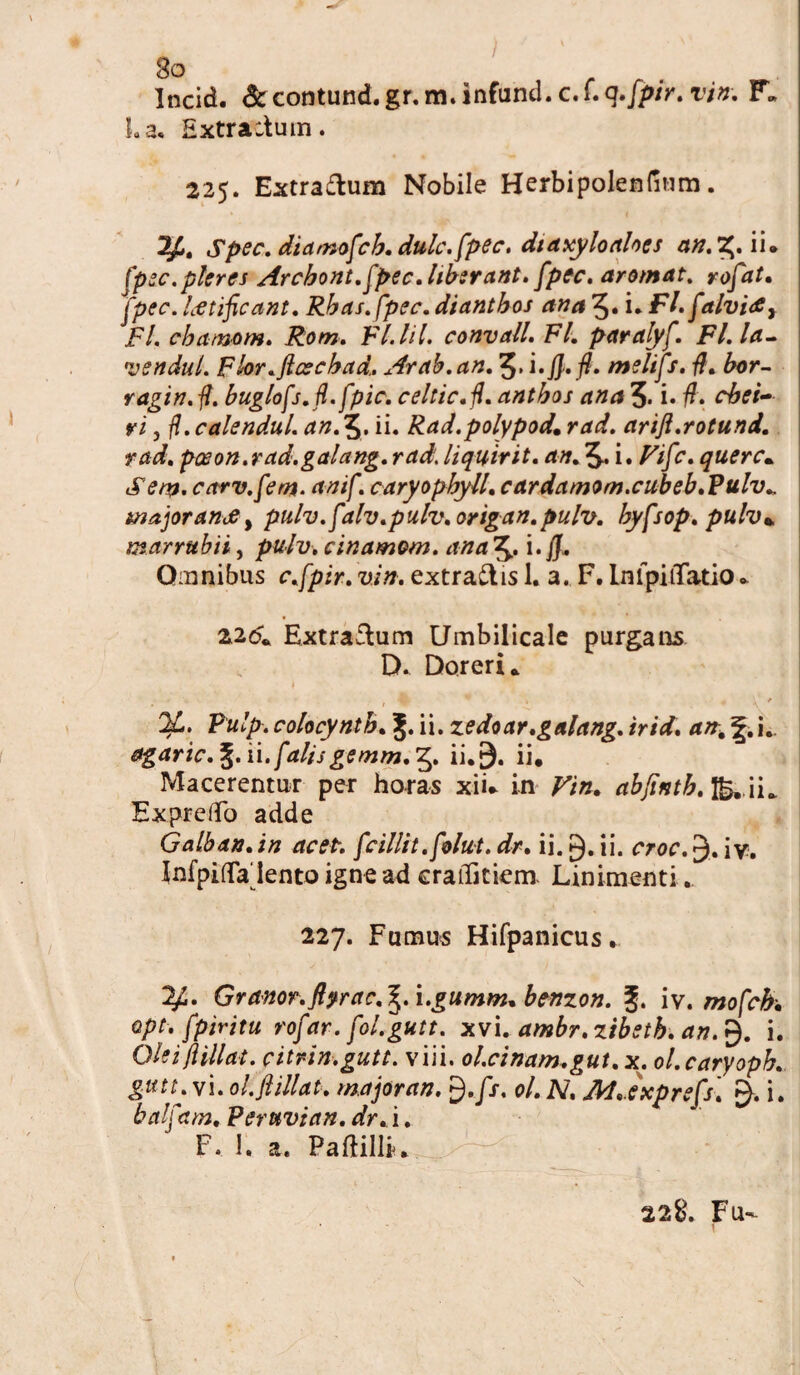 80
Incid. & contund. gr. m. infund. c. f. q. ſpir. vin. F.
l. a. Extractum.
225. Extractum Nobile Herbipolenſium.
℞. Spec. diamoſch. dulc. ſpec. diaxyloaloes an. ʒ. ii.
ſpec. pleres Archont. ſpec. liberant. ſpec. aromat. roſat.
ſpec. lætificant. Rhas. ſpec. dianthos ana ʒ. i. Fl. ſalviæ,
Fl. chamom. Rom. Fl. lil. convall. Fl. paralyſ. Fl. la-
vendul. Flor. ſtœchad. Arab. an. ʒ. i. ſſ. fl. meliſs. fl. bor-
ragin. fl. bugloſs. fl. ſpic. celtic. fl. anthos ana ʒ. i. fl. chei-
ri, fl. calendul. an. ʒ. ii. Rad. polypod. rad. ariſt. rotund.
rad. pœon. rad. galang. rad. liquirit. an. ʒ. i. Viſc. querc.
Sem. carv. ſem. aniſ. caryophyll. cardamom. cubeb. Pulv.
majoranæ, pulv. ſalv. pulv. origan. pulv. hyſsop. pulv.
marrubii, pulv. cinamom. ana ʒ. i. ſſ.
Omnibus c. ſpir. vin. extractis l. a. F. Inſpiſſatio.
226. Extractum Umbilicale purgans
D. Doreri.
℞. Pulp. colocynth. ℥. ii. zedoar. galang. irid. an. ℥. i.
agaric. ℥. ii. ſalis gemm. ʒ. ii. ℈. ii.
Macerentur per horas xii. in Vin. abſinth. ℔. ii.
Expreſſo adde
Galban. in acet. ſcillit. ſolut. dr. ii. ℈. ii. croc. ℈. iv.
Inſpiſſa lento igne ad craſſitiem Linimenti.
227. Fumus Hiſpanicus.
℞. Granor. ſtyrac. ℥. i. gumm. benzon. ℥. iv. moſch.
opt. ſpiritu roſar. ſol. gutt. xvi. ambr. zibeth. an. ℈. i.
Olei ſtillat. citrin. gutt. viii. ol. cinam. gut. x. ol. caryoph.
gutt. vi. ol. ſtillat. majoran. ℈. ſs. ol. N. M. expreſs. ℈. i.
balſam. Peruvian. dr. i.
F. l. a. Paſtilli.
228. Fu-